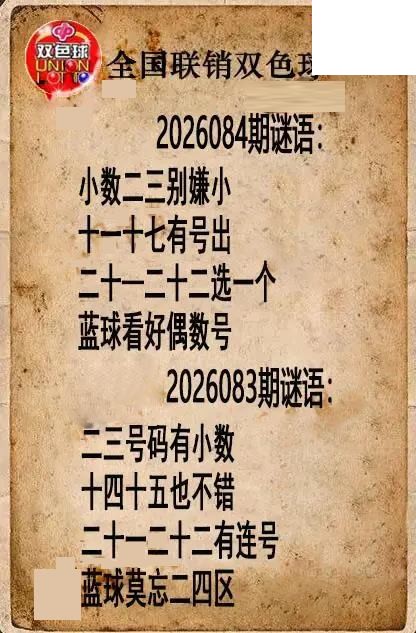 双色球
UNION
LOTTO
全国联销双色球
2026084期谜语：
小数二三别嫌小
十一十七有号出
二十一二十二选一个
蓝球看好偶数号
2026083期谜语：
二三号码有小数
十四十五也不错
二十一二十二有连号
蓝球莫忘二四区